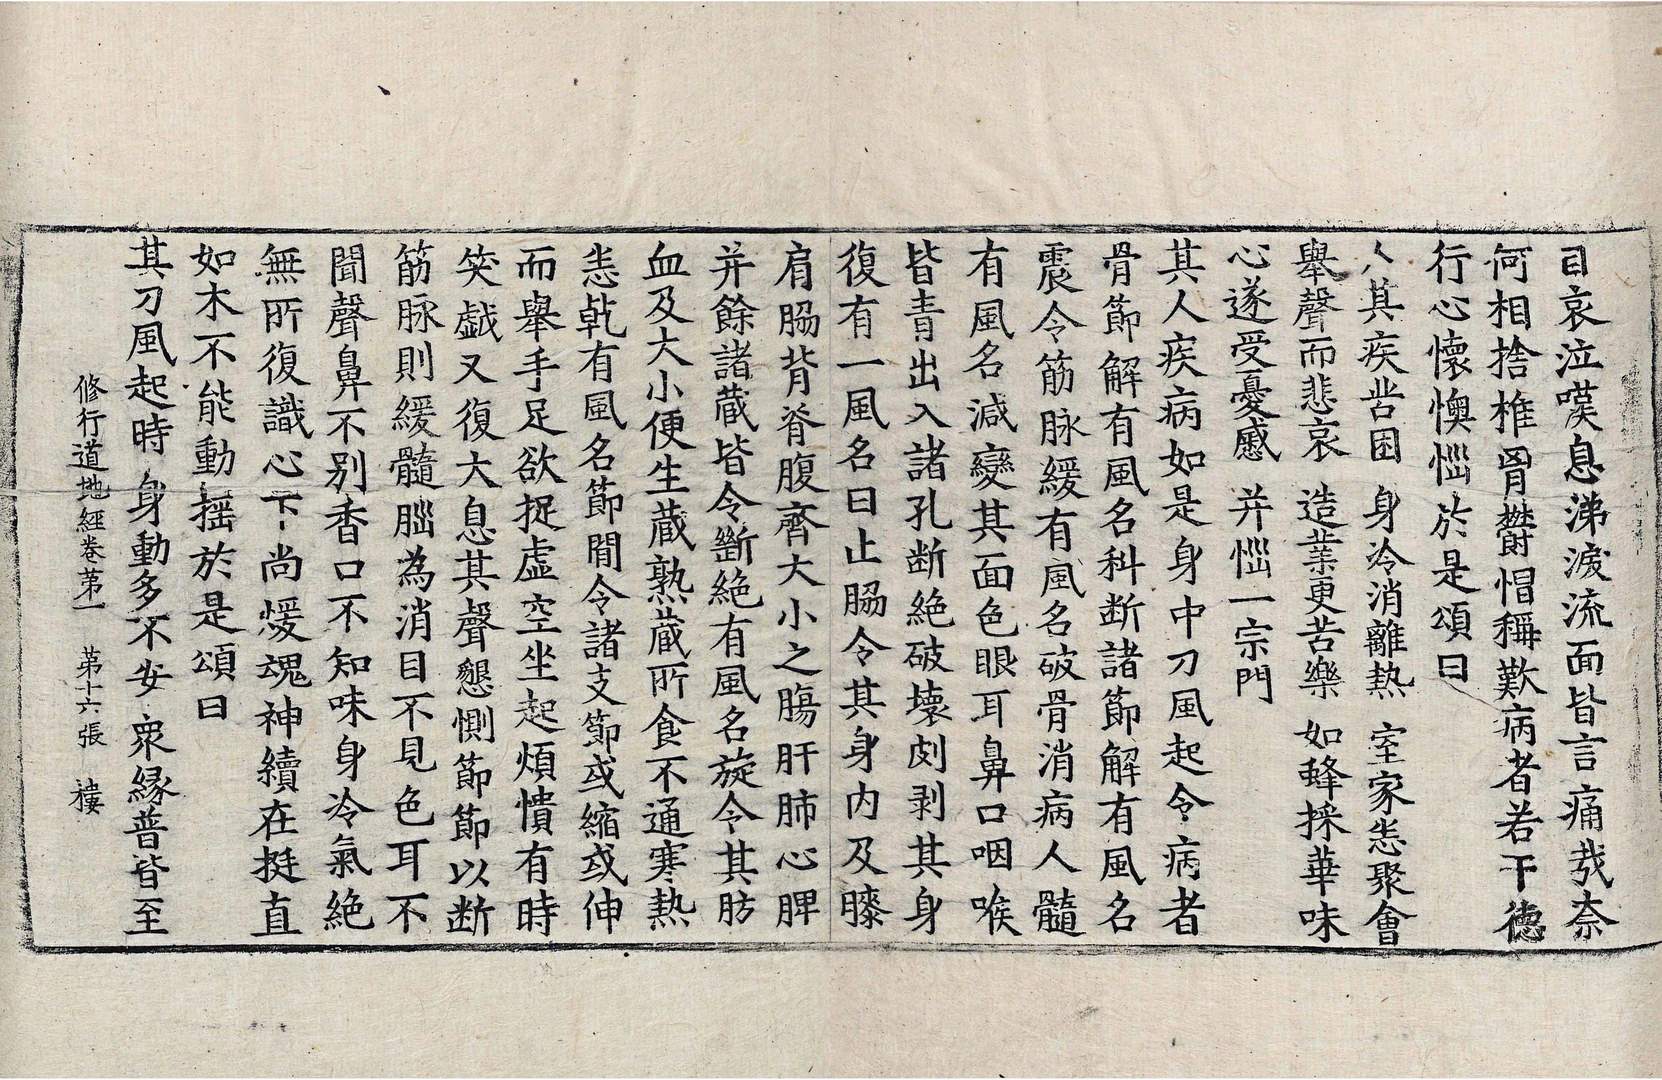 目哀泣嘆息涕淚流面皆言痛哉奈
何相捨椎胷欝悒稱歎病者若干德
行心懷懊惱於是頌曰
人其疾苦困　身冷消離熱　室家恚聚會
舉聲而悲哀　造業更苦樂　如蜂採華味
心遂受憂慼　并惱一宗門
其人疾病如是身中刀風起令病者
骨節解有風名科断諸節解有風名
震令筋脉緩有風名破骨消病人髓
有風名減變其面色眼耳鼻口咽喉
皆青出入諸孔断絕破壞㓟剥其身
復有一風名曰止脇令其身內及膝
肩脇背脊腹齊大小之膓肝肺心脾
并餘諸蔵皆令斷絕有風名旋令其肪
血及大小便生蔵熟蔵所食不通寒熱
恚乾有風名節閒令諸支節或縮或伸
而舉手足欲捉虛空坐起煩憒有時
笑戯又復大息其聲懇惻節節以断
筋脉則緩髓腦為消目不見色耳不
聞聲鼻不别香口不知味身冷氣絶
無所復識心下尚煖魂神續在挺直
如木不能動揺於是頌曰
其刀風起時　身動多不安　衆縁普皆至
修行道地經卷第一　第十六張　樓